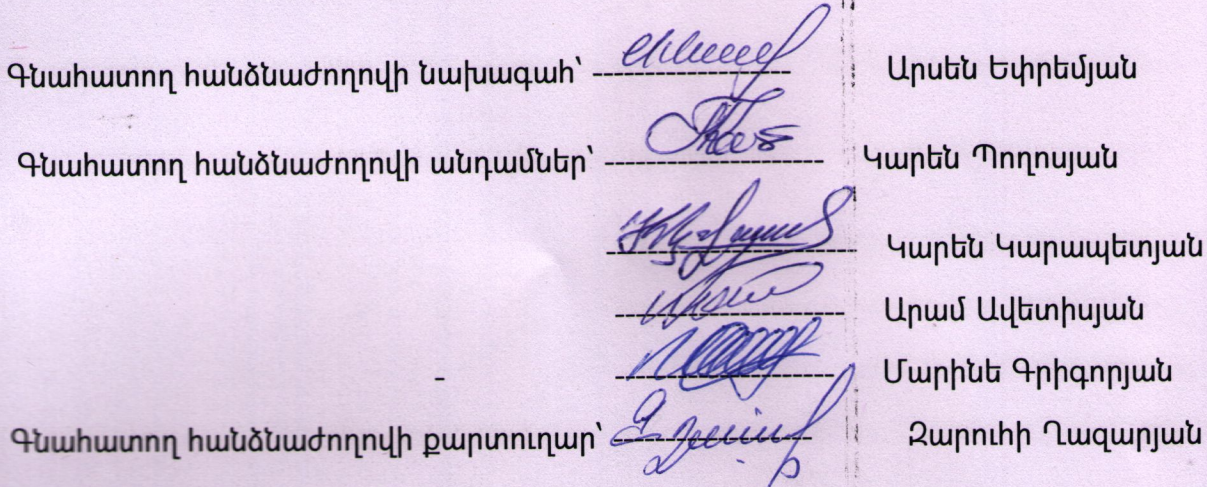 Գնահատող հանձնաժողովի նախագահ՝ Արսեն Եփրեմյան
Գնահատող հանձնաժողովի անդամներ՝ Կարեն Պողոսյան
Կարեն Կարապետյան
Արամ Ավետիսյան
Մարինե Գրիգորյան
Գնահատող հանձնաժողովի քարտուղար՝ Զարուհի Ղազարյան